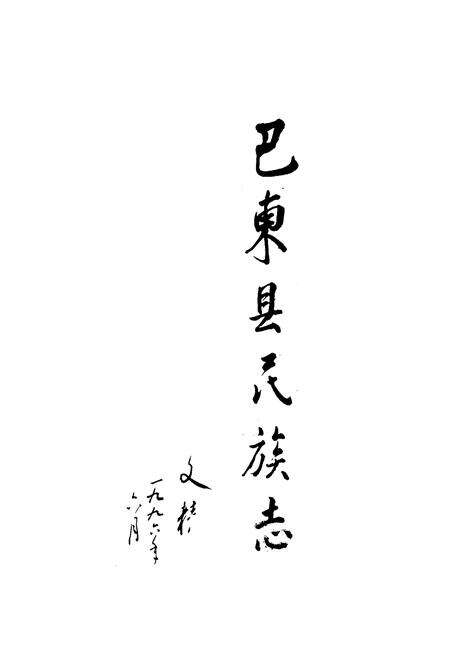 巴東县民族志
文精
一九九六年
六月